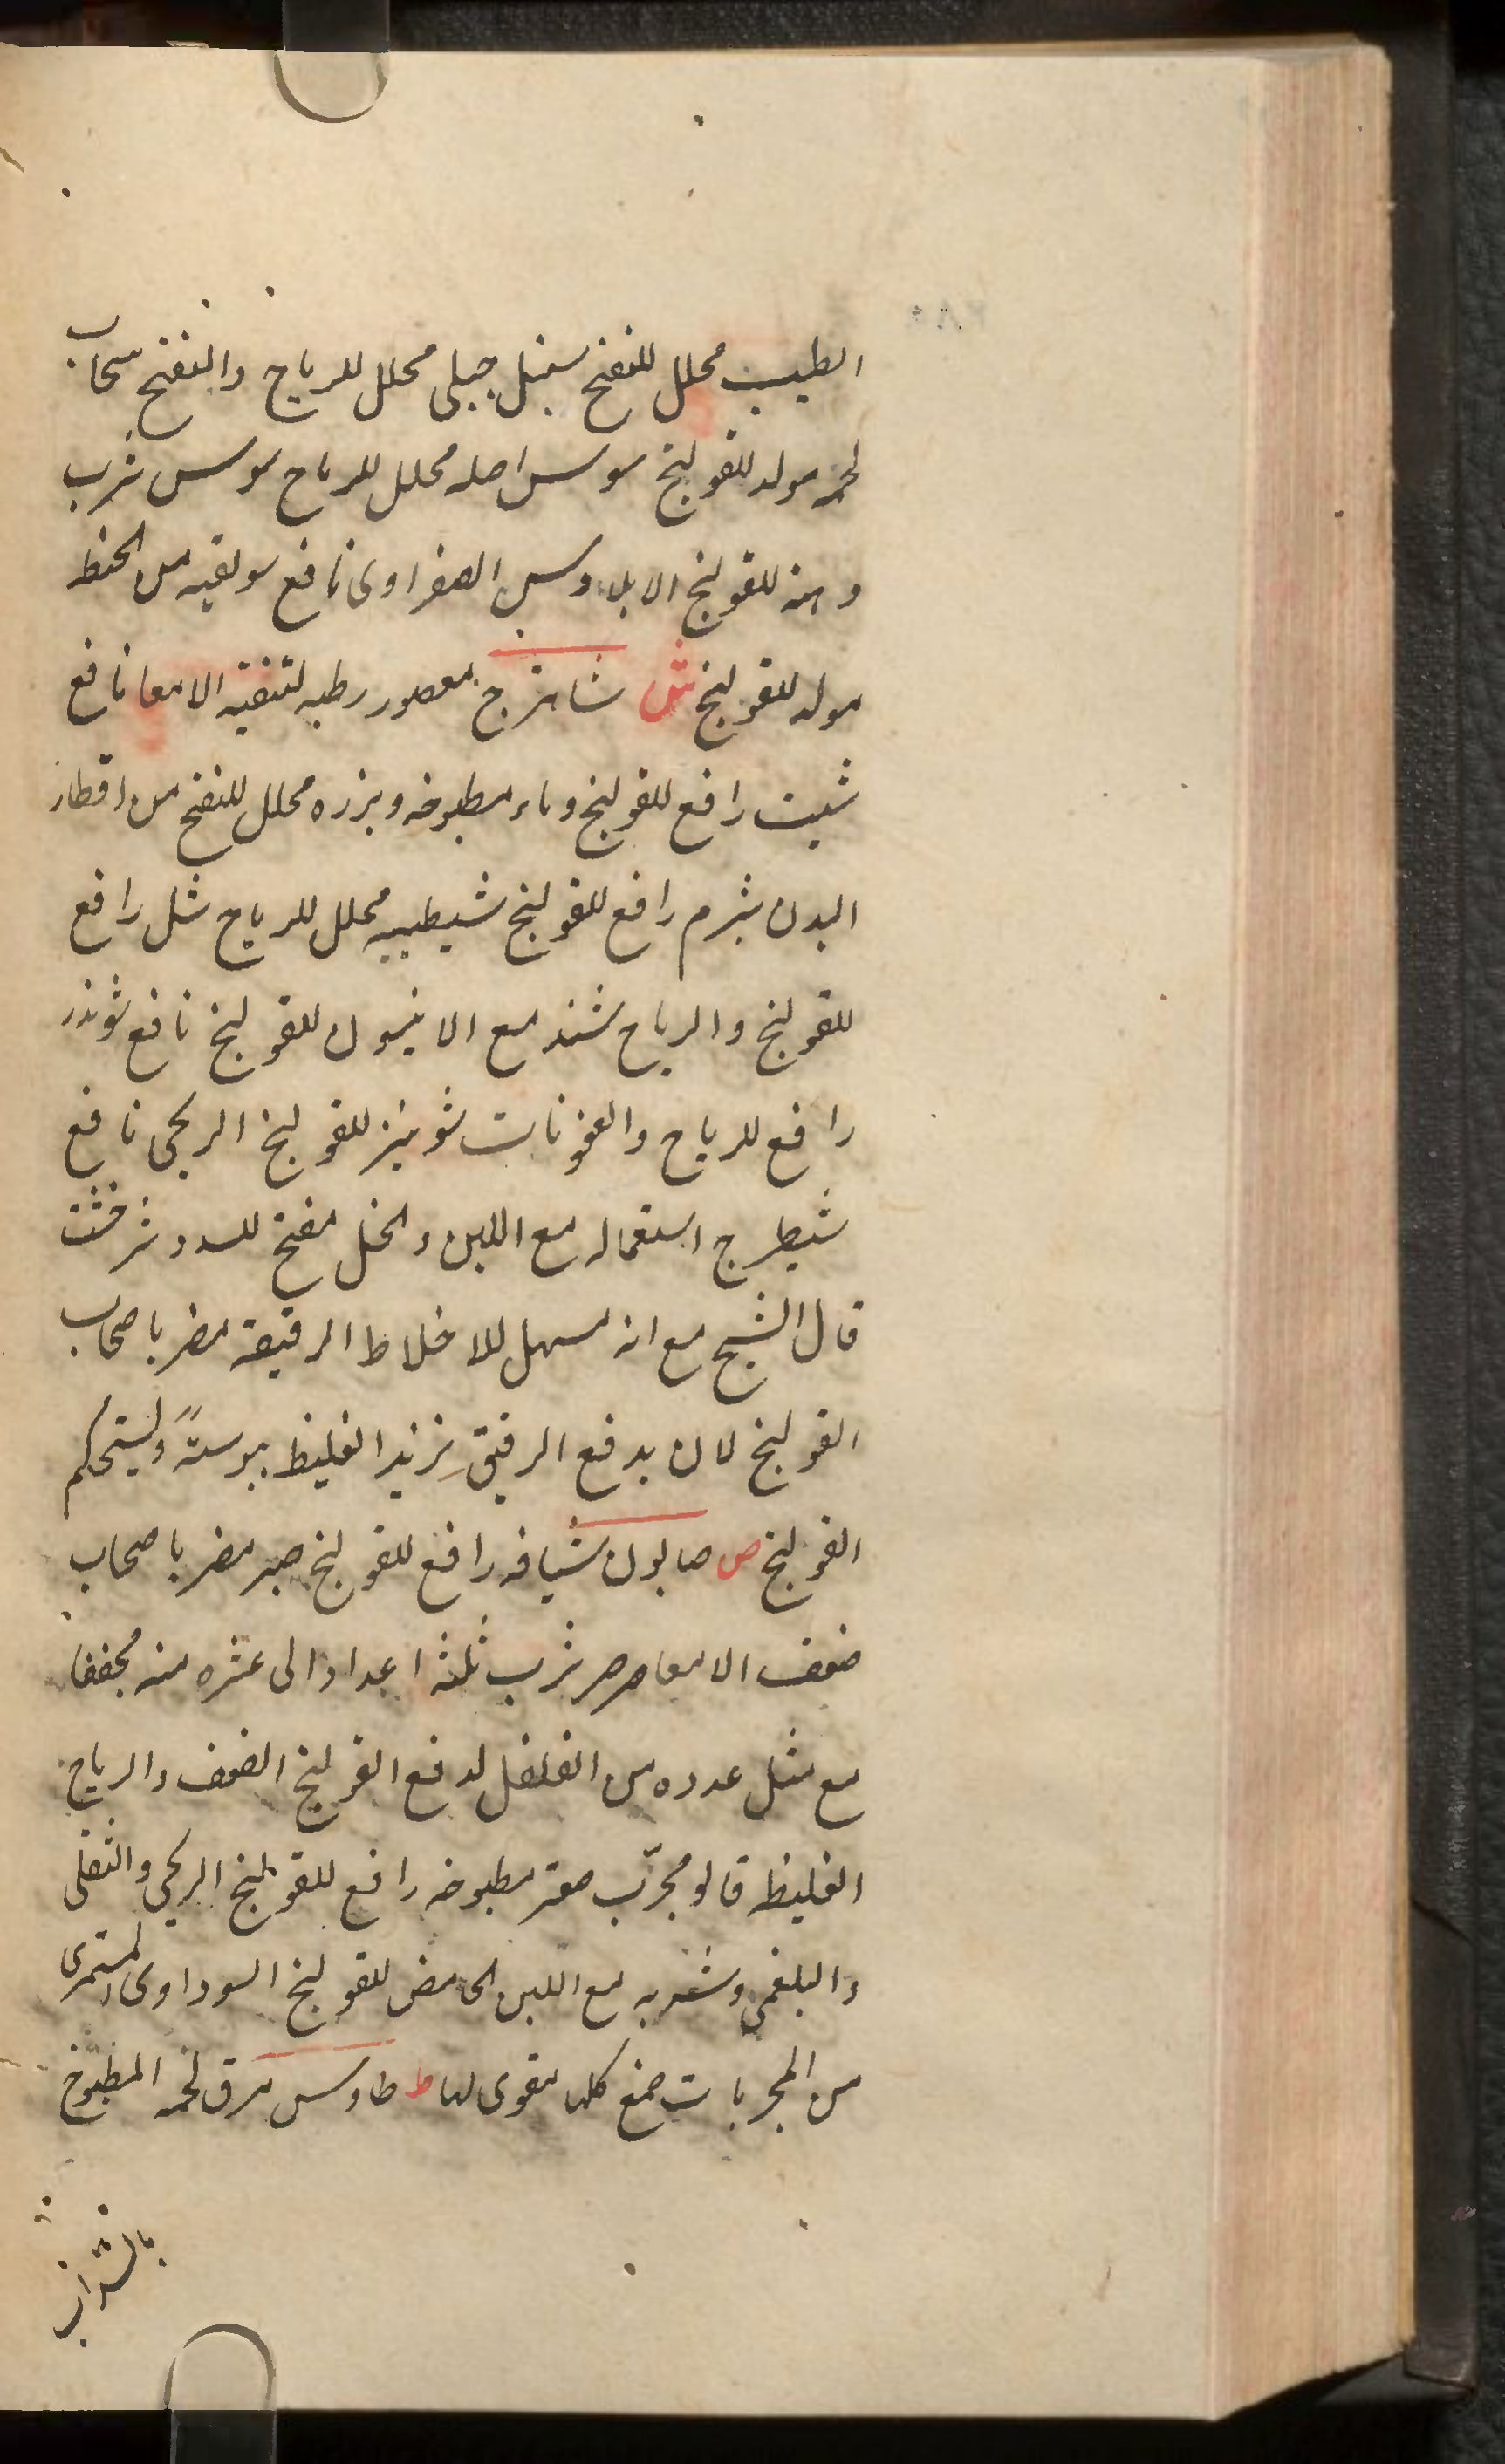 الطيب محلل للنفخ سنبل جبلى محلل للرياح والنفخ سحاب
لحمه مولد للقولنج سوس اصله محلل للرياح سوسن شرب
دهنه للقولنج الايلاوسى الصفراوى نافع سويقه من الحنطه
مولد للقولنج ش شاهترج معصور رطبه لتنقيه الامعا نافع
شبت رافع للقولنج وماء مطبوخه وبزره محلل للنفخ من اقطار
البدن شبرم رافع للقولنج شيطيبه محلل للرياح شل رافع
للقولنج والرياح شند مع الانيسون للقولنج نافع شوندر
رافع للرياح والعفونات شونيز للقولنج الريحى نافع
شيطرج استعماله مع اللبن والخل مفتح للسدد شرخشت
قال الشيخ مع انه مسهل للاخلاط الرقيقة مضر باصحاب
القولنج لان بدفع الرقيق يزيد الغليظ يبوسةً ويستحكم
القولنج ص صابون شيافه رافع للقولنج صبر مضر باصحاب
ضعف الامعا صرصر شرب ثلثه اعداد الى عشره منه مجففا
مع مثل عدده من الفلفل لدفع القولنج الضعف والرياح
الغليظه قالو مجرّب صعتر مطبوخه رافع للقولنج الريحى والثفلى
والبلغمى وشربه مع اللبن الحامض للقولنج السوداوى المستمرى
من المجربات صمغ كلها مقوى لها ط طاوس مرق لحمه المطبوخ
بالشراب